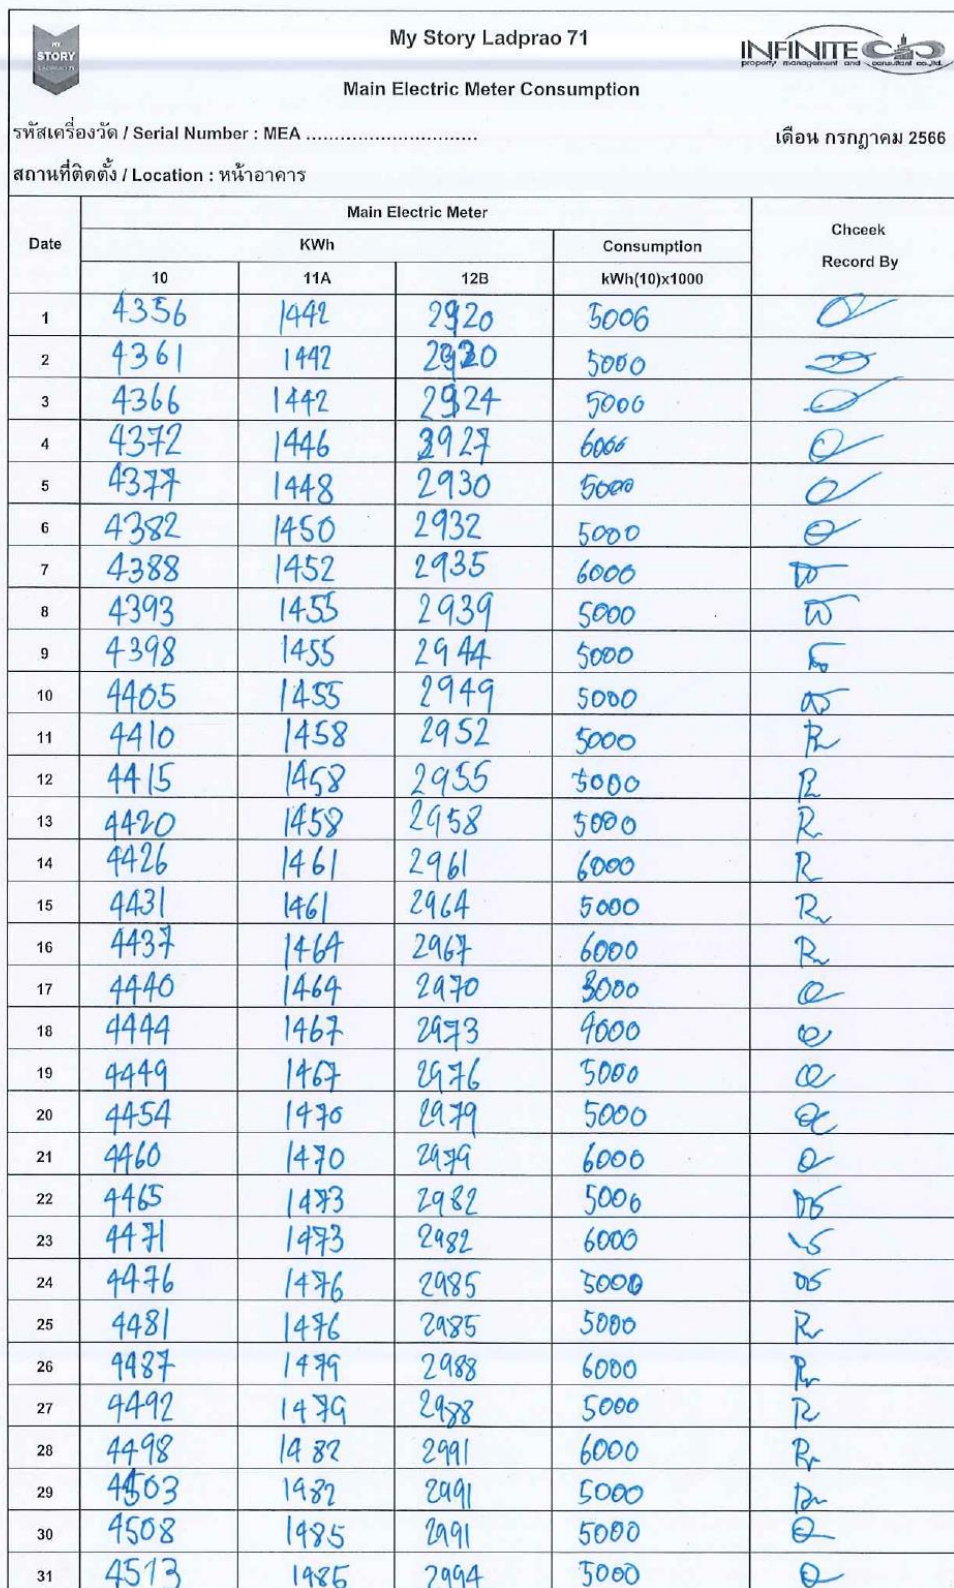 MY
STORY
LADPRAO 71
My Story Ladprao 71
INFINITE
property management and consultant co.,ltd.
Main Electric Meter Consumption
รหัสเครื่องวัด / Serial Number : MEA ..............................
เดือน กรกฎาคม 2566
สถานที่ติดตั้ง / Location : หน้าอาคาร
Date Main Electric Meter Chceek Record By
KWh Consumption
10 11A 12B kWh(10)x1000
1 4356 1442 2920 5000
2 4361 1442 2920 5000
3 4366 1442 2924 5000
4 4372 1446 2927 6000
5 4377 1448 2930 5000
6 4382 1450 2932 5000
7 4388 1452 2935 6000
8 4393 1455 2939 5000
9 4398 1455 2944 5000
10 4405 1455 2949 5000
11 4410 1458 2952 5000
12 4415 1458 2955 5000
13 4420 1458 2958 5000
14 4426 1461 2961 6000
15 4431 1461 2964 5000
16 4437 1464 2967 6000
17 4440 1464 2970 3000
18 4444 1467 2973 4000
19 4449 1467 2976 5000
20 4454 1470 2979 5000
21 4460 1470 2979 6000
22 4465 1473 2982 5000
23 4471 1473 2982 6000
24 4476 1476 2985 5000
25 4481 1476 2985 5000
26 4487 1479 2988 6000
27 4492 1479 2988 5000
28 4498 1482 2991 6000
29 4503 1482 2991 5000
30 4508 1485 2991 5000
31 4513 1485 2994 5000